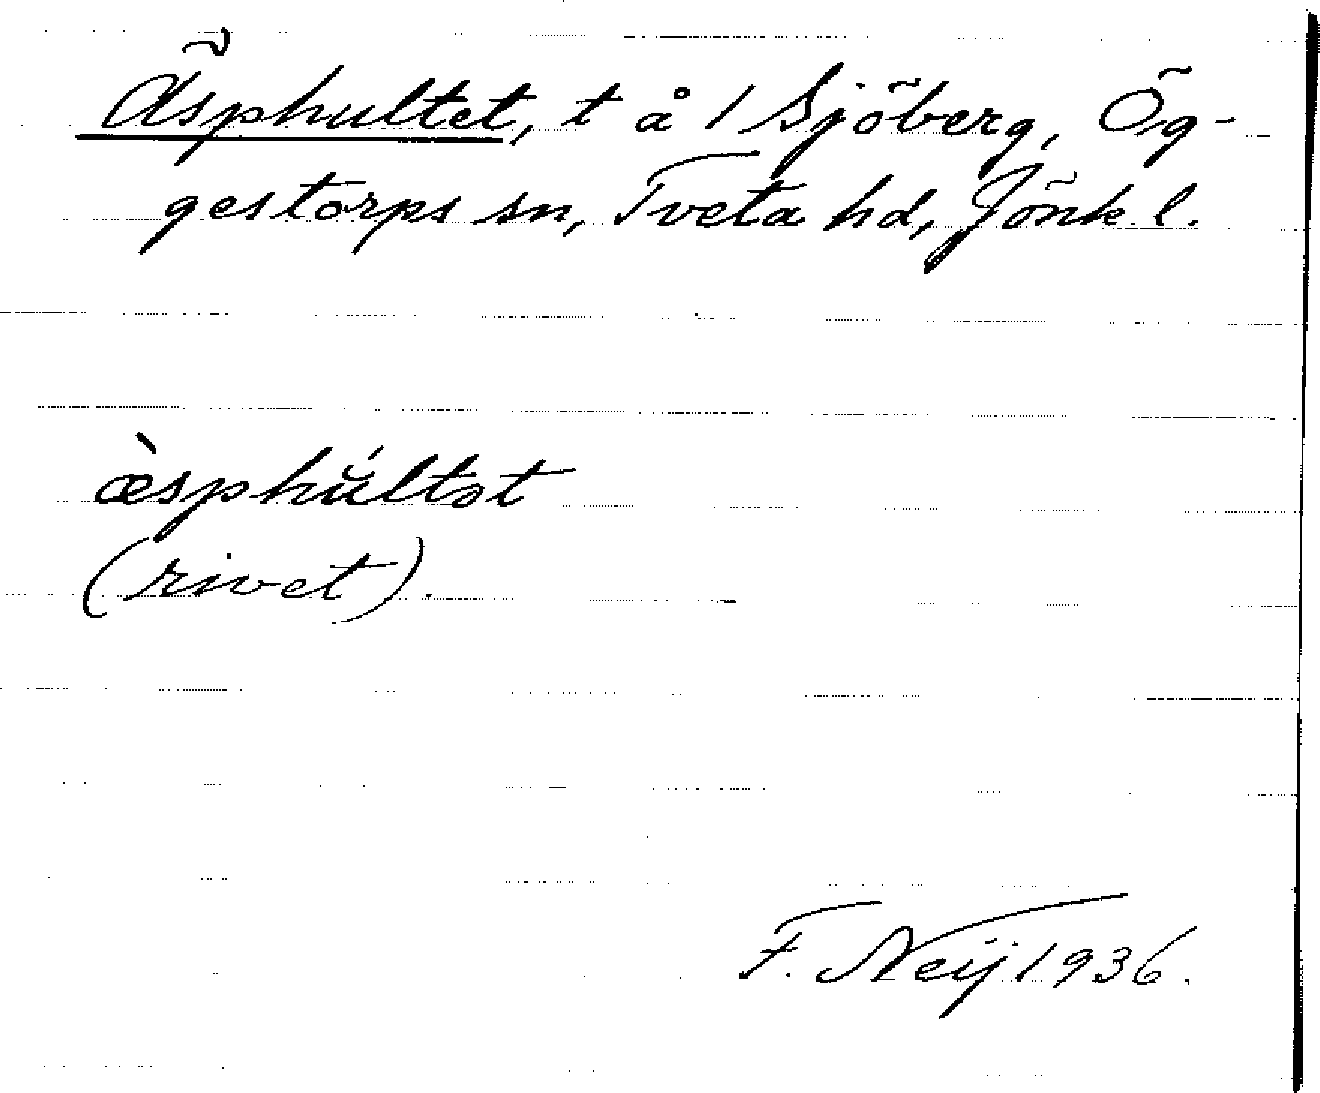 Äsphultet, t å 1 Sjöberg, Ög-
gestorps sn, Tveta hd, Jönk. l.
æ̀sphúltət
(rivet).
F. Neij 1936.